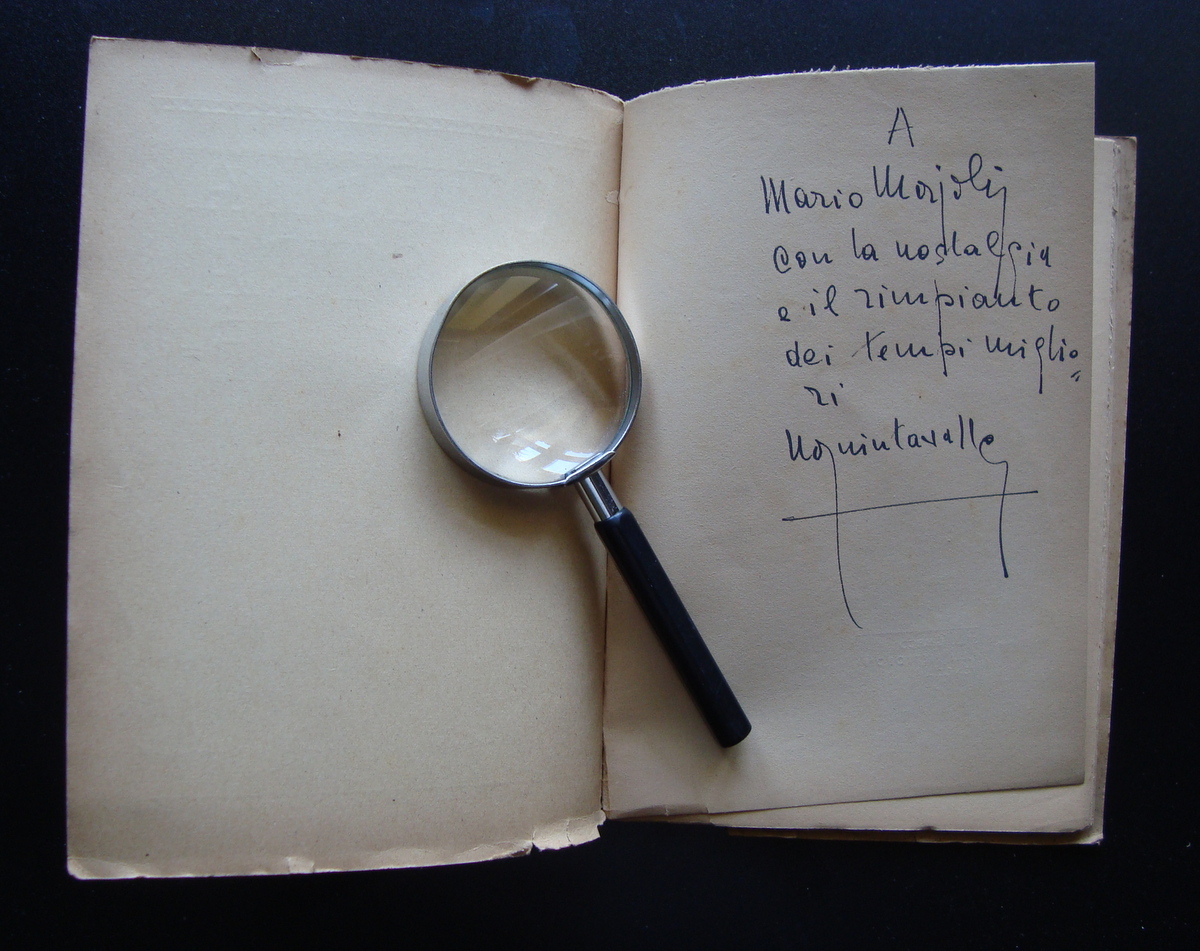 A
Mario
con la nostalgia
e il rimpianto
dei tempi miglio=
ri
Uquintavalle